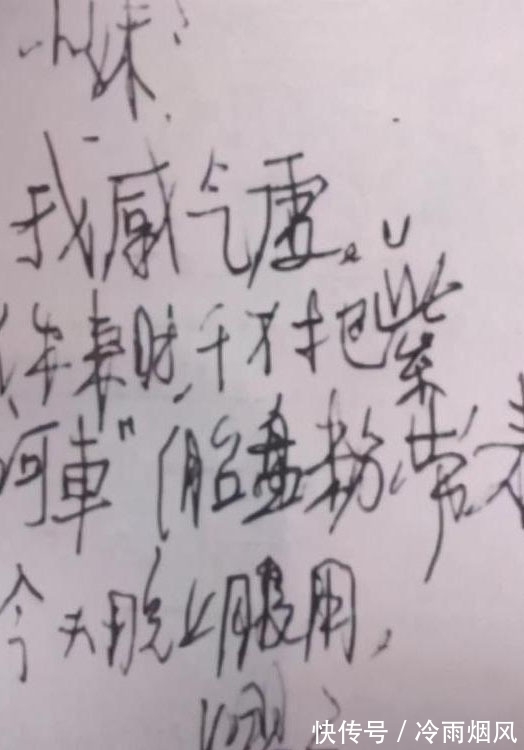 小妹：
我感气虚。
你来时，千万把"紫
河車"（胎盘粉，带来
今天晚上服用，
快传号 / 冷雨烟风